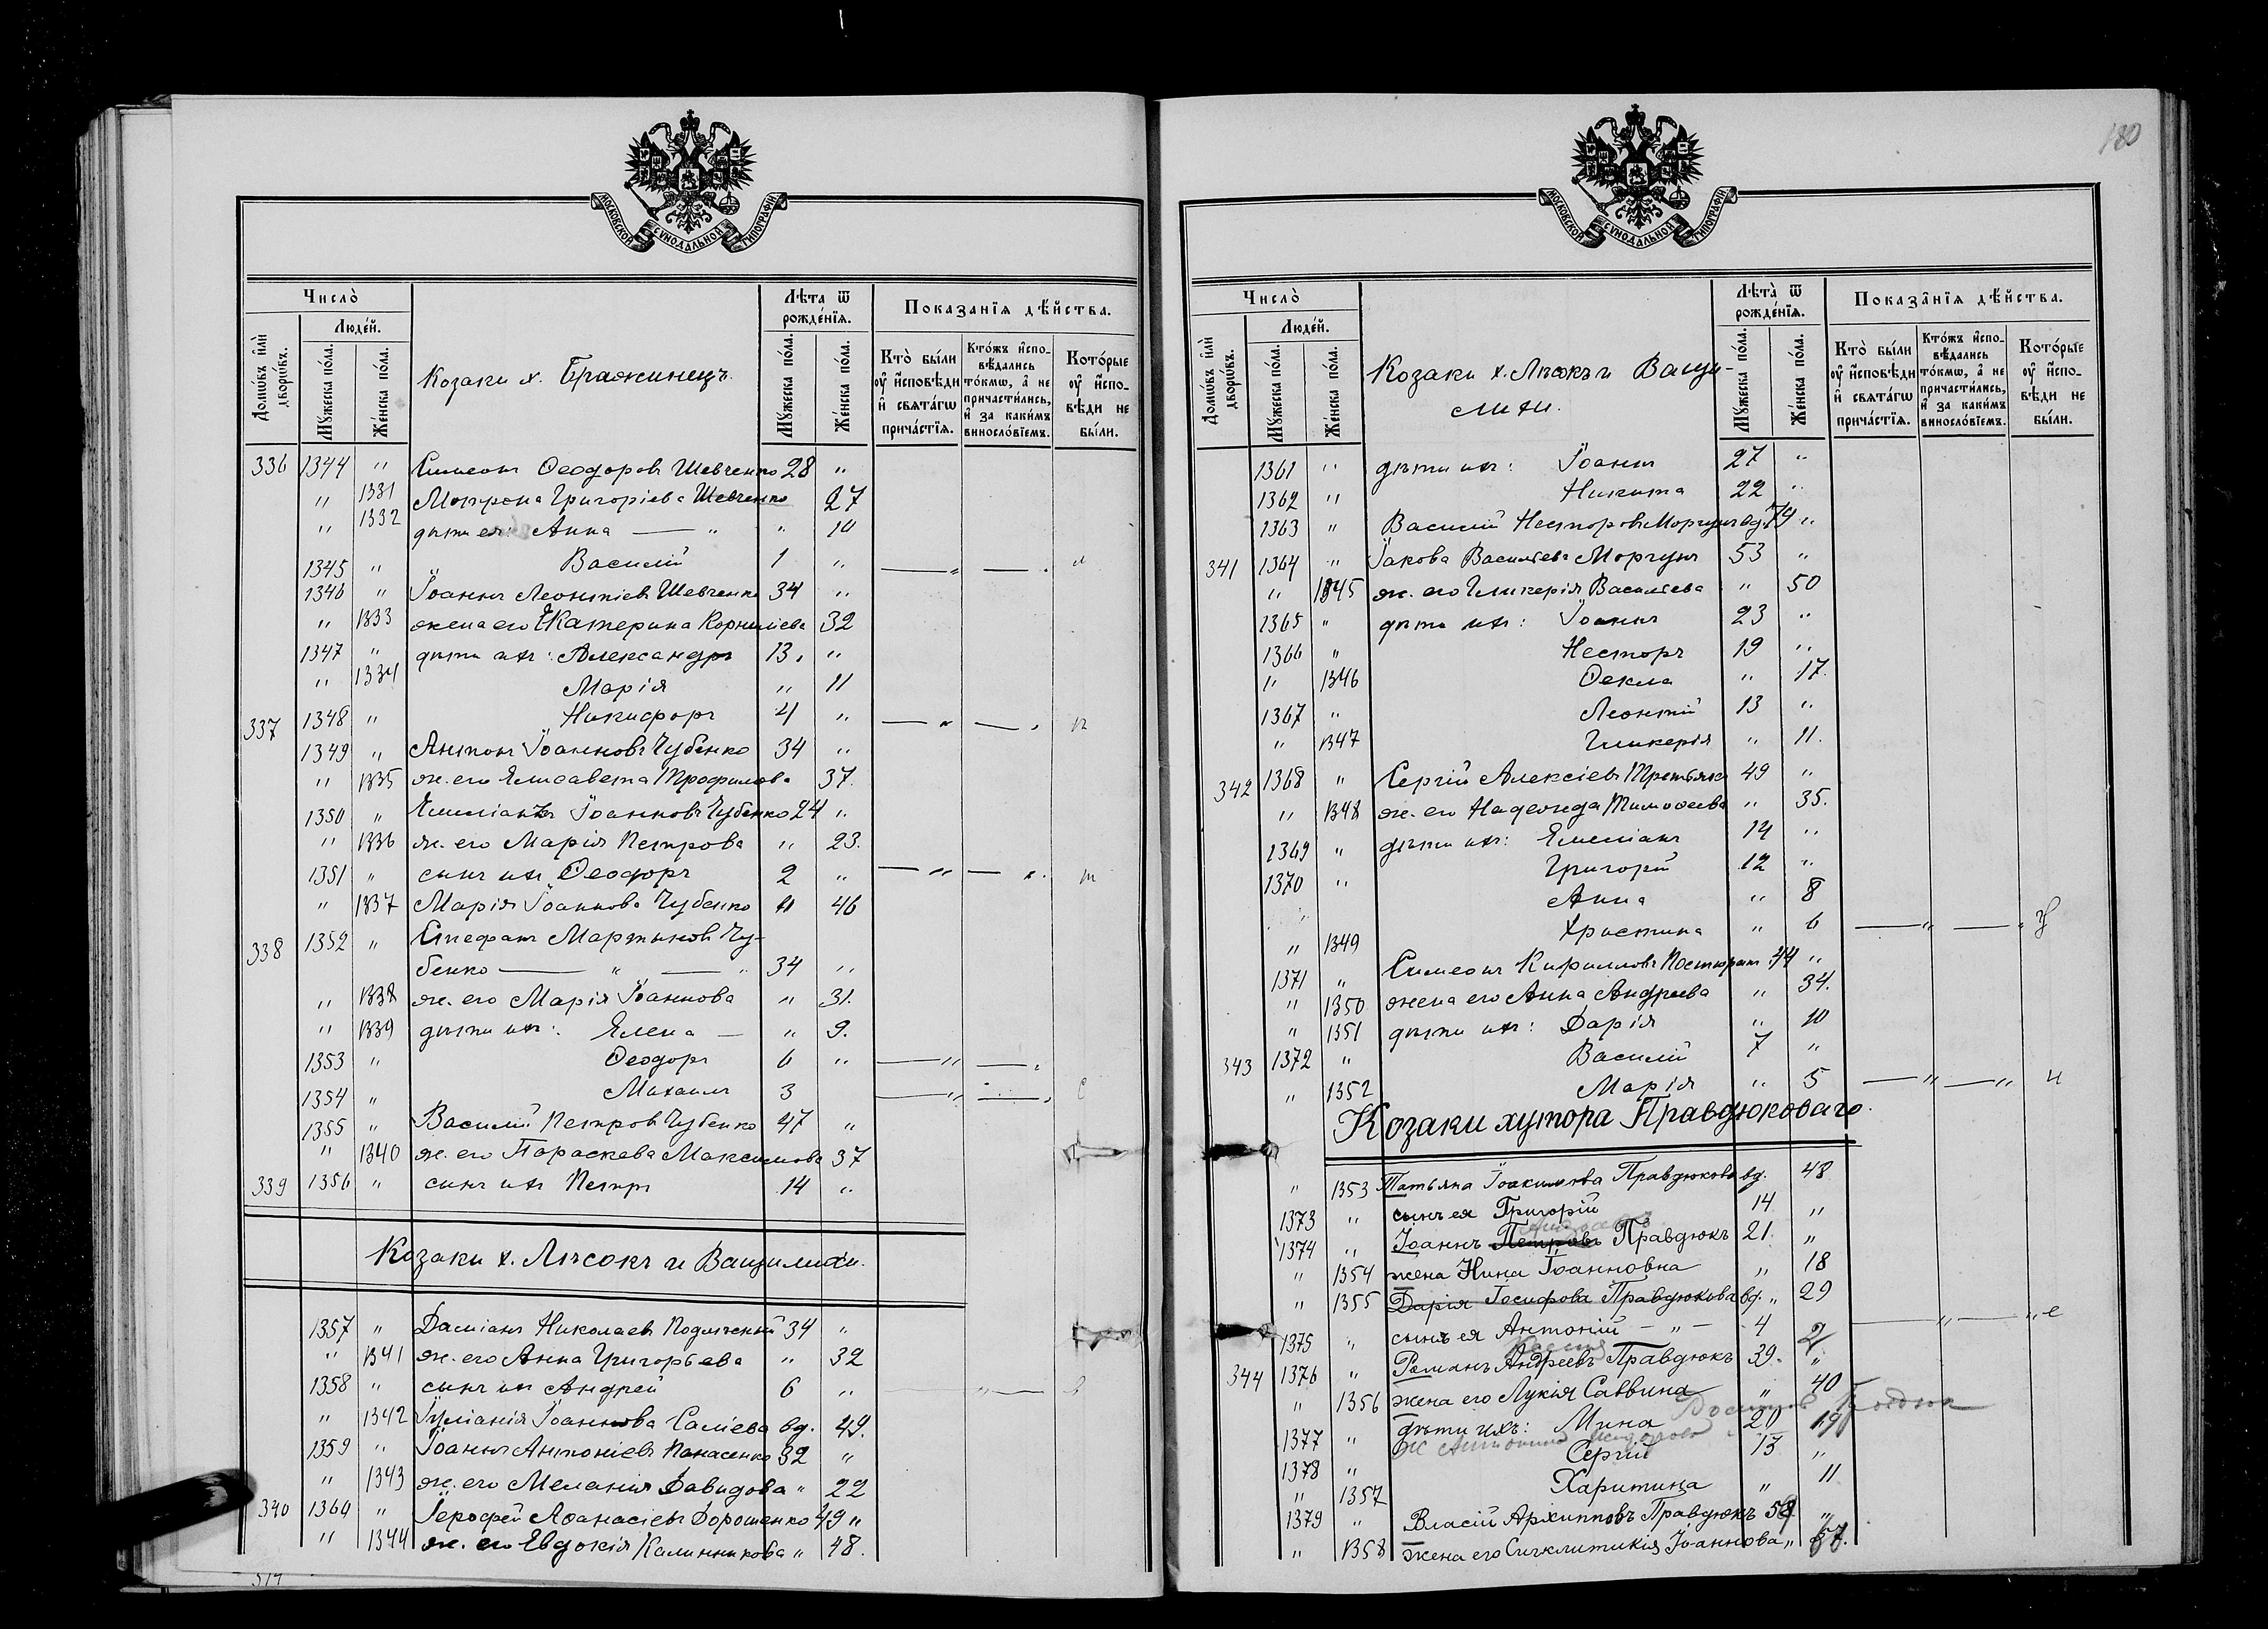 180
МОСКОВСКОЙ СѴНОДАЛЬНОЙ ТИПОГРАФІИ
Число̀
Люде́й.
Домѡ́въ и҆лѝ дворѡ́въ.
Мꙋ́жеска по́ла.
Же́нска по́ла.
Козаки х. Бражинецъ.
Лѣ́та ѿ рожде́нїѧ.
Мꙋ́жеска по́ла.
Же́нска по́ла.
Показа́нїѧ дѣ́йства.
Кто̀ бы́ли оу҆ и҆сповѣди и҆ свѧта́гѡ прича́стїѧ.
Кто́жъ и҆сповѣ́дались то́кмѡ, а҆ не причасти́лись, и҆ за каки́мъ винослѡ́вїемъ.
Кото́рые оу҆ и҆сповѣди не бы́ли.
336 1344 " Симеонъ Ѳеодоровъ Шевченко 28 "
" 1331 Матрона Григоріева Шевченко 27
" 1332 дѣти ея: Анна — " " 10
1345 " Василій 1 "
1346 " Іоаннъ Леонтіевъ Шевченко 34 "
" 1333 жена его Екатерина Корниліева 32
1347 " дѣти ихъ: Александръ 13. "
" 1334 Марія " 11
337 1348 " Никифоръ 4 "
1349 " Антонъ Іоанновъ Чубенко 34 "
" 1335 ж. его Елисавета Трофимова 37.
1350 " Емиліанъ Іоанновъ Чубенко 24 "
" 1336 ж. его Марія Петрова " 23.
1351 " сынъ ихъ Ѳеодоръ 2 "
" 1337 Марія Іоаннова Чубенко " 46
338 1352 " Стефанъ Мартыновъ Чу-
бенко — " — " 34 "
" 1338 ж. его Марія Іоаннова " 31.
" 1339 дѣти ихъ: Елена — " 9.
1353 " Ѳеодоръ 6 "
1354 " Михаилъ 3
1355 " Василій Петровъ Чубенко 47 "
" 1340 ж. его Параскева Максимова 37
339 1356 " сынъ ихъ Петръ 14 "
Козаки х. Лѣсокъ и Ващилихи.
1357 " Даміанъ Николаевъ 34 "
" 1341 ж. его Анна Григорьева " 32
1358 " сынъ ихъ Андрей 6 "
" 1342 Іуліанія Іоаннова Саліева вд. 49.
1359 " Іоаннъ Антоніевъ Панасенко 32 "
" 1343 ж. его Меланія Давидова " 22
340 1360 " Іерофей Аѳанасіевъ Дорошенко 49 "
" 1344 ж. его Евдокія Калинникова " 48.
МОСКОВСКОЙ СѴНОДАЛЬНОЙ ТИПОГРАФІИ
Число̀
Люде́й.
Домѡ́въ и҆лѝ дворѡ́въ.
Мꙋ́жеска по́ла.
Же́нска по́ла.
Козаки х. Лѣсокъ и Ващи-
лихи.
Лѣ́та ѿ рожде́нїѧ.
Мꙋ́жеска по́ла.
Же́нска по́ла.
Показа́нїѧ дѣ́йства.
Кто̀ бы́ли оу҆ и҆сповѣди и҆ свѧта́гѡ прича́стїѧ.
Кто́жъ и҆сповѣ́дались то́кмѡ, а҆ не причасти́лись, и҆ за каки́мъ винослѡ́вїемъ.
Кото́рыїе оу҆ и҆сповѣди не бы́ли.
1361 " дѣти ихъ: Іоаннъ 27 "
1362 " Никита 22 "
1363 " Василій Несторовъ Моргунъ вд. 79 "
341 1364 " Іакова Васильева Моргунъ 53 "
" 1345 ж. его Гликерія Васильева " 50
1365 " дѣти ихъ: Іоаннъ 23 "
1366 " Несторъ 19 "
" 1346 Ѳекла " 17.
1367 " Леонтій 13 "
" 1347 Гликерія " 11.
342 1368 " Сергій Алексіевъ Третьякъ 49 "
" 1348 ж. его Надежда Тимоѳеева " 35.
1369 " дѣти ихъ: Емиліанъ 14 "
1370 " Григорій 12 "
" Анна " 8
" 1349 Христина " 6
1371 " Симеонъ Кирилловъ 44 "
" 1350 жена его Анна Андреева " 34.
" 1351 дѣти ихъ: Дарія " 10
343 1372 " Василій 7 "
" 1352 Марія " 5
Козаки хутора Правдюковаго.
" 1353 Татьяна Іоакимова Правдюкова вд. 48
1373 " сынъ ея Григорій 14 "
1374 " Іоаннъ Петровъ Правдюкъ 21. "
" 1354 жена Нина Іоанновна " 18
" 1355 Дарія Іосифова Правдюкова вд. " 29
1375 " сынъ ея Антоній — " — 4
344 1376 " Романъ Андреевъ Правдюкъ 39. "
" 1356 жена его Лукія Саввина " 40
1377 " дѣти ихъ: Мина 20 19
1378 " Сергій 13 "
" 1357 Харитина " 11
1379 " Власій Архипповъ Правдюкъ 58 "
" 1358 жена его Сигклитикія Іоаннова " 57.